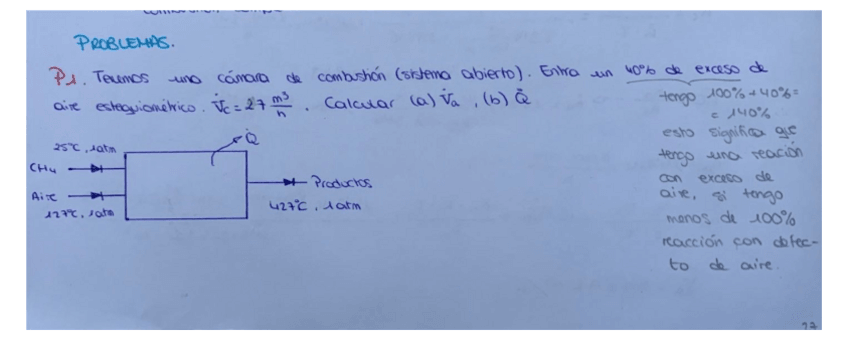 PROBLEMAS.
P1. Tenemos una cámara de combustión (sistema abierto). Entra un 40% de exceso de
aire estequiométrico. V̇c = 27 m³/h. Calcular (a) V̇a, (b) Q̇
tengo 100% + 40% =
= 140%
esto significa que
tengo una reacción
con exceso de
aire, si tengo
menos de 100%
reacción con defec-
to de aire.
25°C, 1atm
Q̇
CH4
Productos
Aire
427°C, 1atm
127°C, 1atm